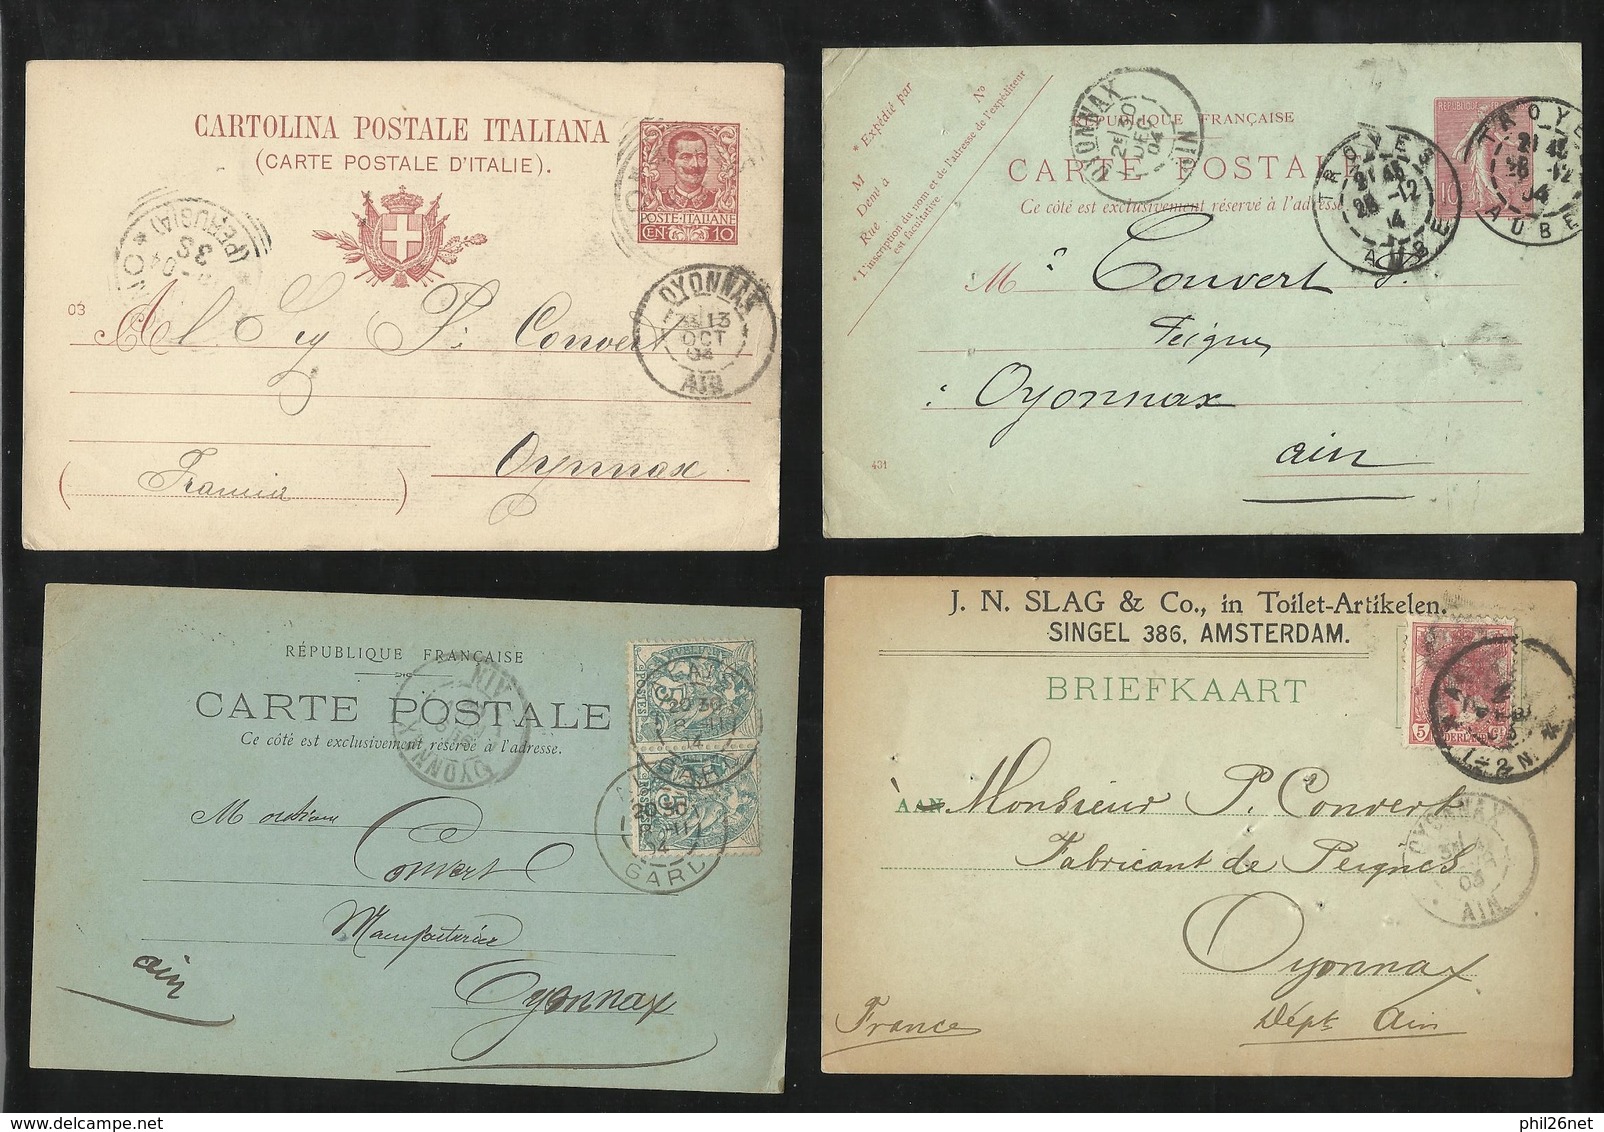 CARTOLINA POSTALE ITALIANA
(CARTE POSTALE D'ITALIE).
POSTE·ITALIANE
CEN 10
(PERUGIA)
03
Convert
OYONNAX
13
OCT
04
AIN
Oyonnax
Francia
* Expédié par
M
Demt à
Rue
No
* L'inscription du nom et de l'adresse de l'expéditeur
est facultative
OYONNAX
30
DEC
04
AIN
RÉPUBLIQUE FRANÇAISE
CARTE POSTALE
Ce côté est exclusivement réservé à l'adresse
10
TROYES
28 -12
04
AUBE
TROYES
28 -12
04
AUBE
M Convert
Oyonnax
ain
431
RÉPUBLIQUE FRANÇAISE
CARTE POSTALE
Ce côté est exclusivement réservé à l'adresse.
OYONNAX
AIN
POSTES
20 30
GARD
20 30
04
GARD
Convert
Oyonnax
ain
J. N. SLAG & Co., in Toilet-Artikelen.
SINGEL 386, AMSTERDAM.
BRIEFKAART
5
NEDERLAND
à AAN Monsieur P. Convert
Fabricant de Peignes
Oyonnax
France
Dépt Ain
OYONNAX
03
AIN
phil26net